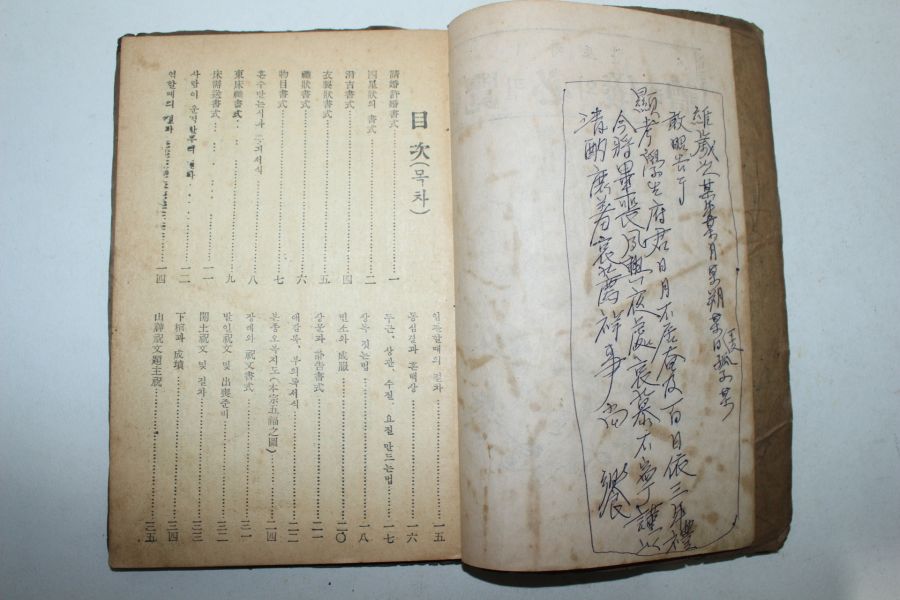 維歲次某年某月某朔某日辰孤子某
敢昭告于
顯考學生府君日月不居奄及百日依三年禮
今將畢喪夙興夜處哀慕不寧謹以
清酌庶羞哀薦祥事尚 饗
目次(목차)
請婚許婚書式…一
四星狀의 書式…二
涓吉書式…四
衣製狀書式…五
禮狀書式…六
物目書式…七
혼수받는식과 서식…八
東床禮書式…九
床需送書式…一一
사람이 운명할무렵 절차…一二
절차…一四
입관할때의 절차…一五
동심결과 혼백상…一六
두근, 상관, 수질, 요질 만드는법…一七
상복 짓는법…一八
빈소와 成服…二〇
상문과 訃告書式…二一
애감록, 부의록서식…二二
본종오복지도(本宗五福之圖)…二四
장례의 祝文書式…三一
발인祝文 및 出喪준비…三二
開土祝文 및 절차…三三
下棺과 成墳…三四
山神祝文題主祝…三五